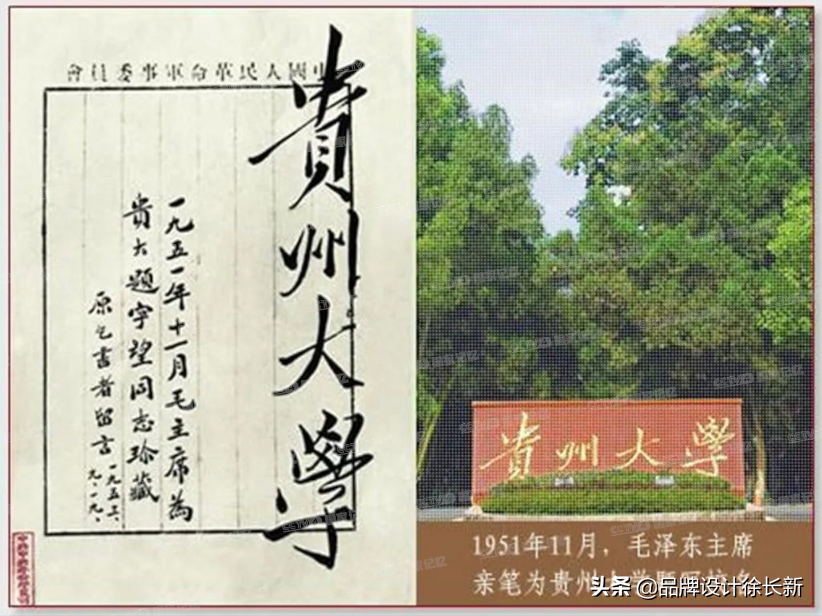 中國人民革命軍事委員會
貴州大學
一九五一年十一月毛主席為
貴大題字望同志珍藏
原乞書者留言
一九五二、
九.一九.
貴州大學
1951年11月，毛泽东主席
亲笔为贵州
头条 @品牌设计徐长新